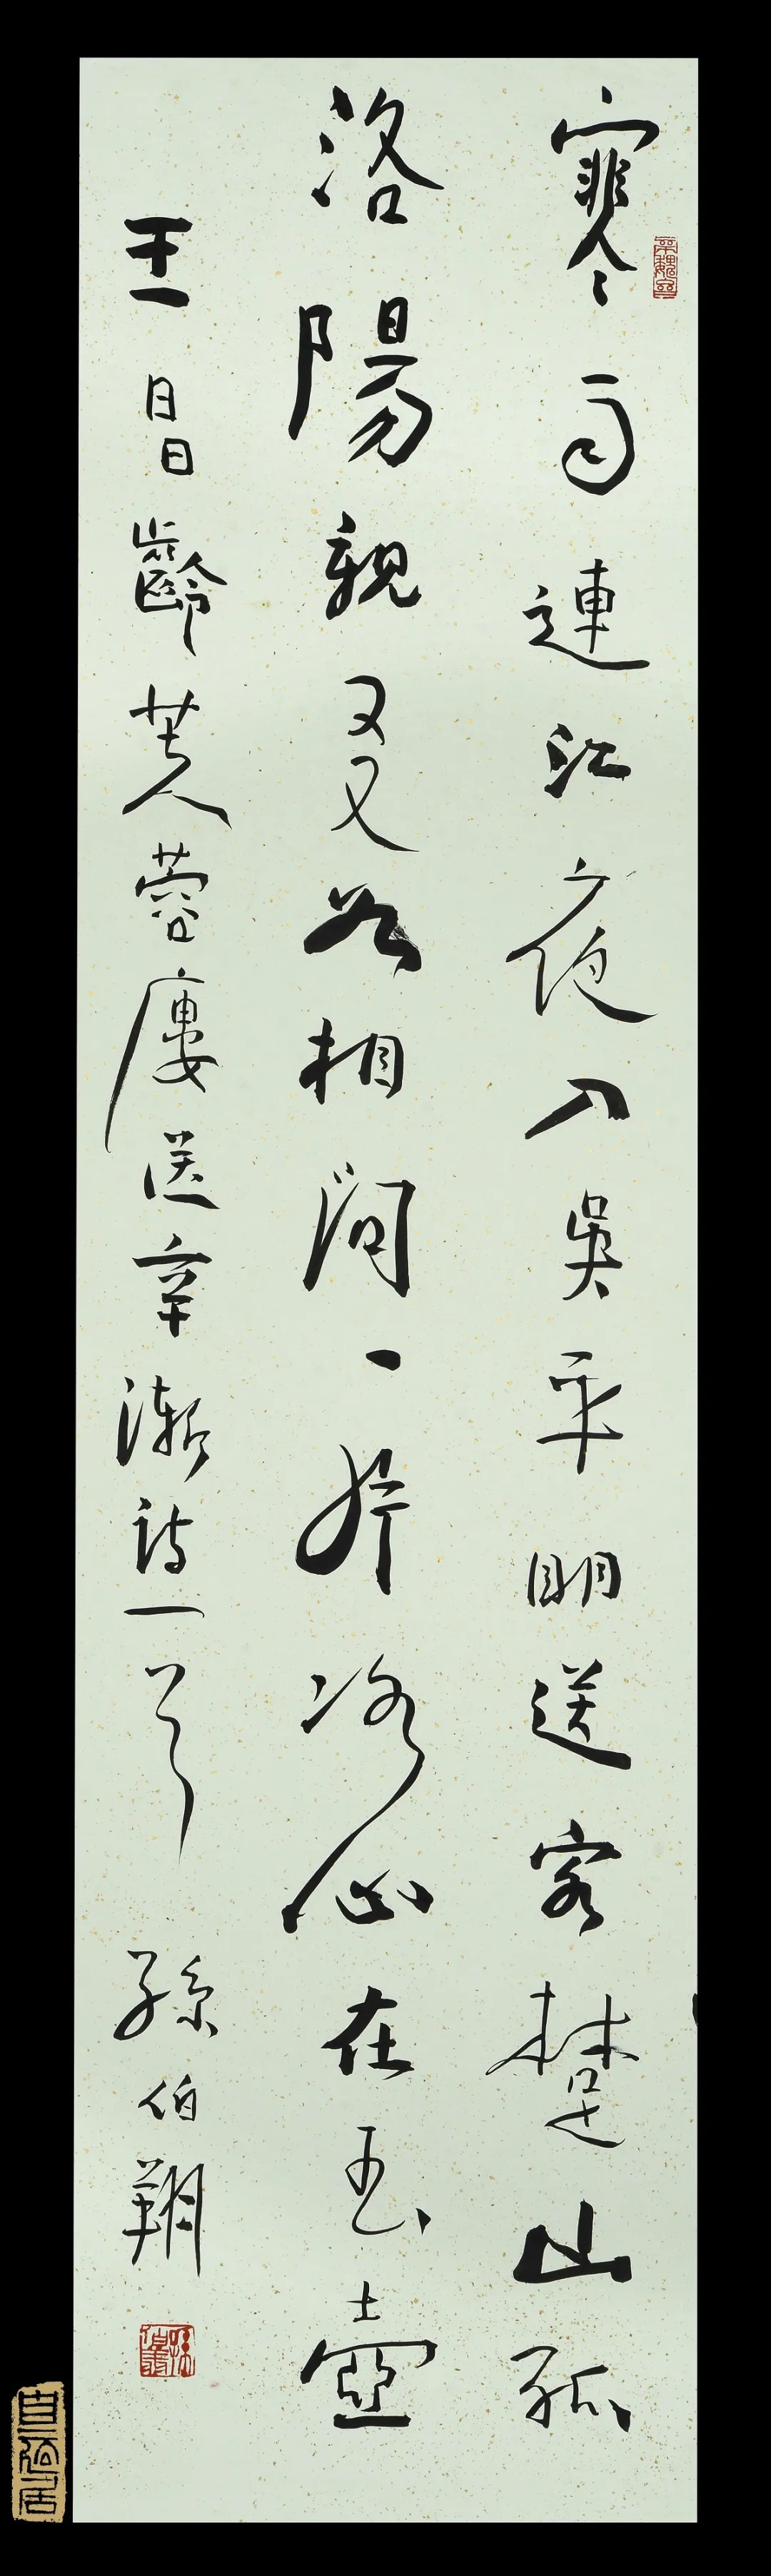 寒雨連江夜入吳平明送客楚山孤
洛陽親友如相問一片冰心在玉壺
王昌齡芙蓉樓送辛漸詩一首 孫伯翔